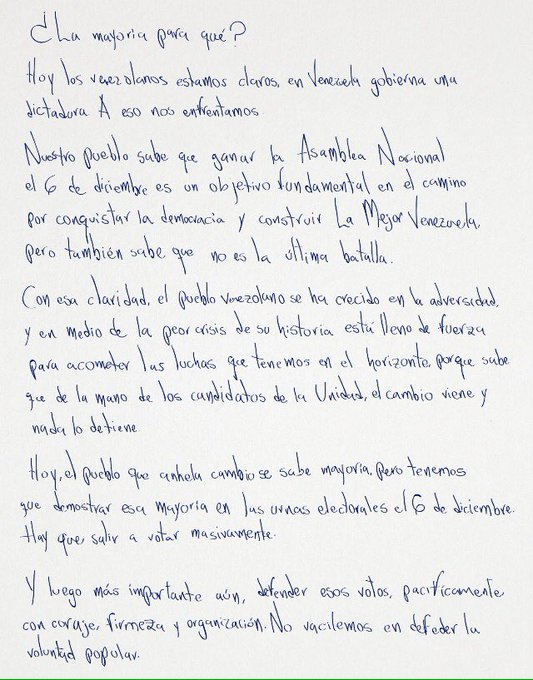 ¿La mayoria para qué?
Hoy los venezolanos estamos claros, en Venezuela gobierna una
dictadura A eso nos enfrentamos.
Nuestro pueblo sabe que ganar la Asamblea Nacional
el 6 de diciembre es un objetivo fundamental en el camino
por conquistar la democracia y construir La Mejor Venezuela,
pero también sabe que no es la última batalla.
Con esa claridad, el pueblo venezolano se ha crecido en la adversidad,
y en medio de la peor crisis de su historia está lleno de fuerza
para acometer las luchas que tenemos en el horizonte, porque sabe
que de la mano de los candidatos de la Unidad, el cambio viene y
nada lo detiene
Hoy, el pueblo que anhela cambio se sabe mayoría, pero tenemos
que demostrar esa mayoría en las urnas electorales el 6 de diciembre.
Hay que salir a votar masivamente.
Y luego más importante aún, defender esos votos, pacíficamente
con coraje, firmeza y organización. No vacilemos en defeder la
voluntad popular.